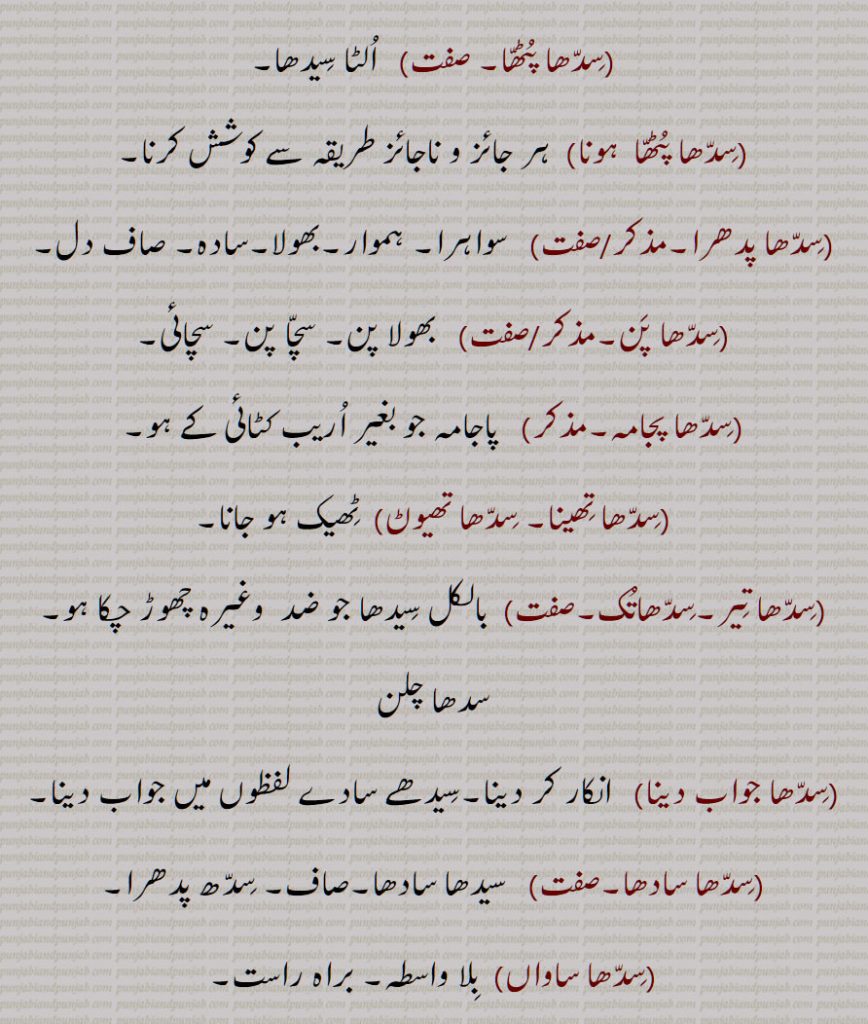 (سِدّھا پُٹھّا۔ صفت) اُلٹا سِیدھا۔
(سِدّھا پُٹھّا ہونا) ہر جائز و ناجائز طریقہ سے کوشش کرنا۔
(سِدّھا پدھرا۔مذکر/صفت) سواہرا۔ ہموار۔بھولا۔سادہ۔ صاف دل۔
(سِدّھا پَن۔مذکر/صفت) بھولا پن۔ سچّا پن۔ سچائی۔
(سِدّھا پجامہ۔مذکر) پاجامہ جو بغیر اُریب کٹائی کے ہو۔
(سِدّھا تِھینا۔ سِدّھا تھیوݨ) ٹِھیک ہو جانا۔
(سِدّھا تِیر۔سِدّھاتُک۔صفت) بالکل سِیدھا جو ضد وغیرہ چھوڑ چکا ہو۔
سدھا چلن
(سِدّھا جواب دینا) انکار کر دینا۔سِیدھے سادے لفظوں میں جواب دینا۔
(سِدّھا سادھا۔صفت) سیدھا سادھا۔صاف۔ سِدّھ پدھرا۔
(سِدّھا ساواں) بِلا واسطہ۔ براہ راست۔